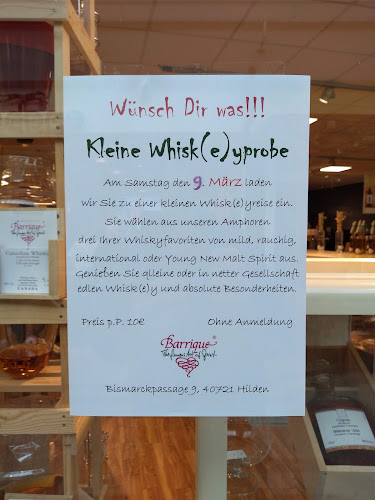 Wünsch Dir was!!!
Kleine Whisk(e)yprobe
Am Samstag den 9. März laden
wir Sie zu einer kleinen Whisk(e)yreise ein.
Sie wählen aus unseren Amphoren
drei Ihrer Whiskyfavoriten von mild, rauchig,
international oder Young New Malt Spirit aus.
Genießen Sie alleine oder in netter Gesellschaft
edlen Whisk(e)y und absolute Besonderheiten.
Preis p.P. 10€ Ohne Anmeldung
Barrique®
The famous Art of Spirit
Bismarckpassage 9, 40721 Hilden
Barrique
Canadian Whisky
CANADA